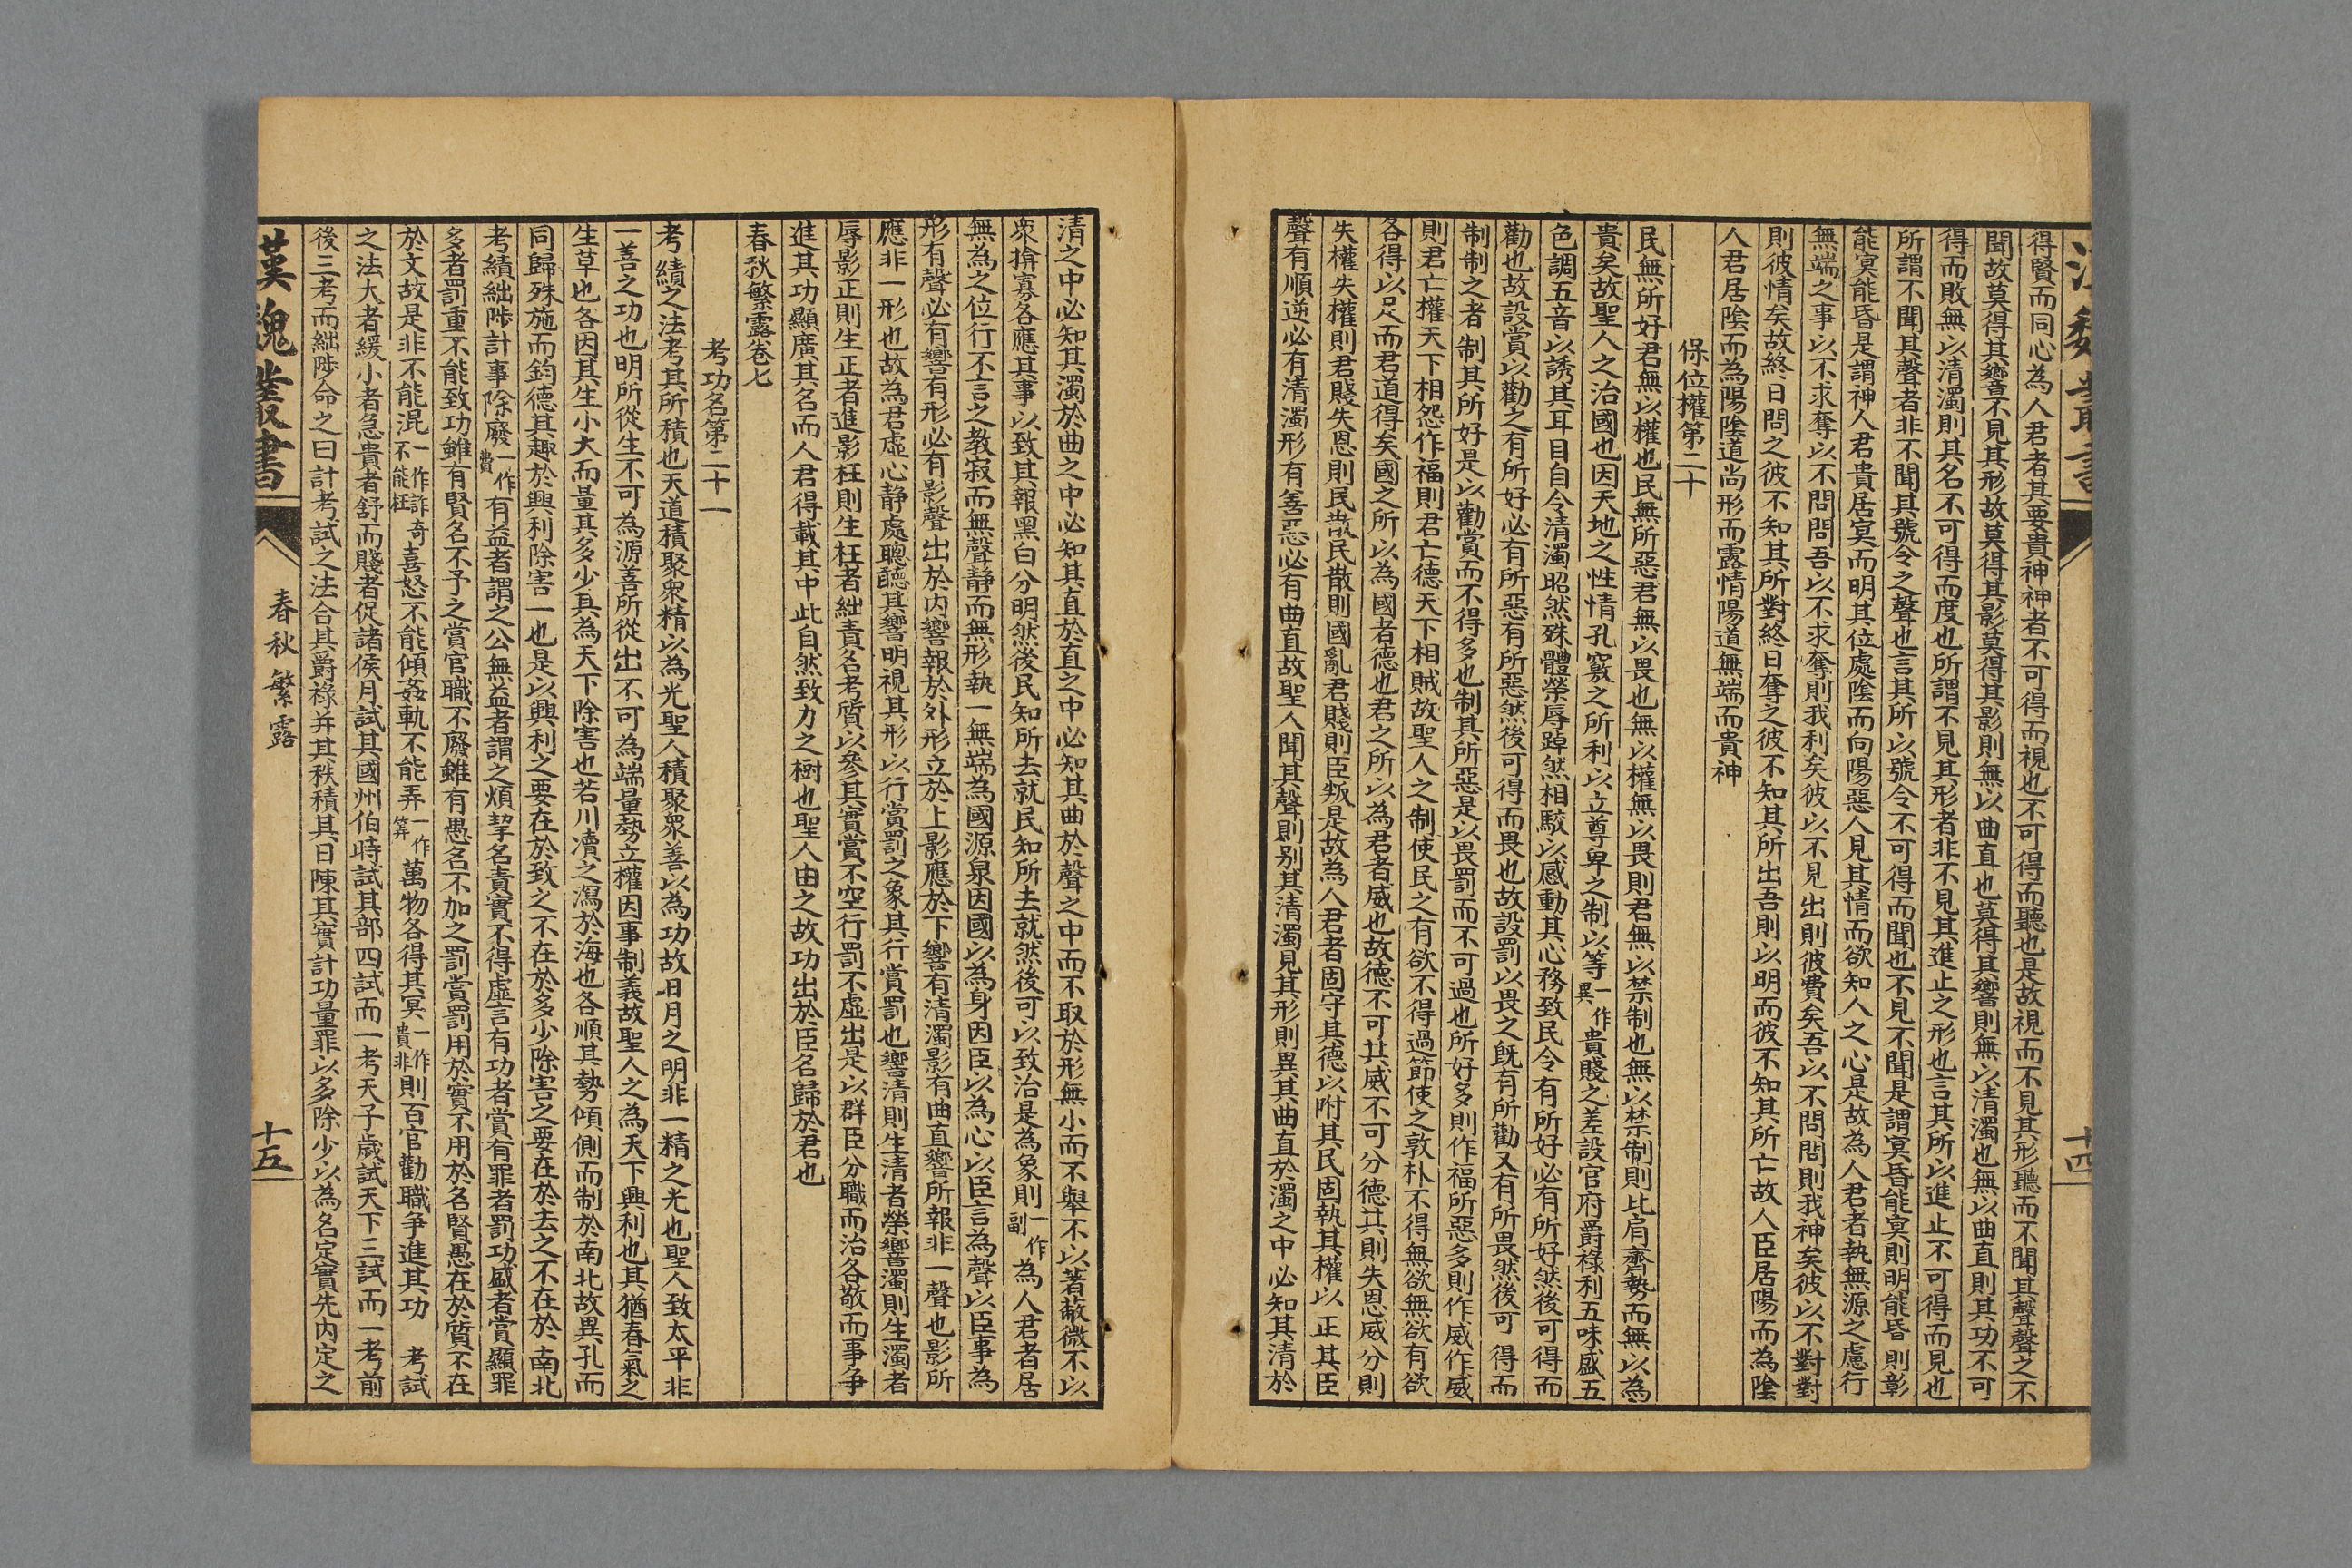 得賢而同心為人君者其要貴神神者不可得而視也不可得而聽也是故視而不見其形聽而不聞其聲聲之不
聞故莫得其響不見其形故莫得其影莫得其影則無以曲直也莫得其響則無以清濁也無以曲直則其功不可
得而敗無以清濁則其名不可得而度也所謂不見其形者非不見其進止之形也言其所以進止不可得而見也
所謂不聞其聲者非不聞其號令之聲也言其所以號令不可得而聞也不見不聞是謂冥昏能冥則明能昏則彰
能冥能昏是謂神人君貴居冥而明其位處陰而向陽惡人見其情而欲知人之心是故為人君者執無源之慮行
無端之事以不求奪以不問問吾以不求奪則我利矣彼以不見出則彼費矣吾以不問問則我神矣彼以不對對
則彼情矣故終日問之彼不知其所對終日奪之彼不知其所出吾則以明而彼不知其所亡故人臣居陽而為陰
人君居陰而為陽陰道尚形而露情陽道無端而貴神
保位權第二十
民無所好君無以權也民無所惡君無以畏也無以權無以畏則君無以禁制也無以禁制則比肩齊勢而無以為
貴矣故聖人之治國也因天地之性情孔竅之所利以立尊卑之制以等一作異貴賤之差設官府爵祿利五味盛五
色調五音以誘其耳目自令清濁昭然殊體榮辱踔然相駮以感動其心務致民令有所好必有所好然後可得而
勸也故設賞以勸之有所好必有所惡有所惡然後可得而畏也故設罰以畏之既有所勸又有所畏然後可得而
制制之者制其所好是以勸賞而不得多也制其所惡是以畏罰而不可過也所好多則作福所惡多則作威作威
則君亡權天下相怨作福則君亡德天下相賊故聖人之制使民之有欲不得過節使之敦朴不得無欲無欲有欲
各得以足而君道得矣國之所以為國者德也君之所以為君者威也故德不可共威不可分德共則失恩威分則
失權失權則君賤失恩則民散民散則國亂君賤則臣叛是故為人君者固守其德以附其民固執其權以正其臣
聲有順逆必有清濁形有善惡必有曲直故聖人聞其聲則別其清濁見其形則異其曲直於濁之中必知其清於
十四
清之中必知其濁於曲之中必知其直於直之中必知其曲於聲之中而不取於形無小而不舉不以著蔽微不以
衆揜寡各應其事以致其報黑白分明然後民知所去就民知所去就然後可以致治是為象則一作副為人君者居
無為之位行不言之教寂而無聲静而無形執一無端為國源泉因國以為身因臣以為心以臣言為聲以臣事為
形有聲必有響有形必有影聲出於内響報於外形立於上影應於下響有清濁影有曲直響所報非一聲也影所
應非一形也故為君虛心静處聰聽其響明視其形以行賞罰之象其行賞罰也響清則生清者榮響濁則生濁者
辱影正則生正者進影枉則生枉者絀責名考質以參其實賞不空行罰不虛出是以群臣分職而治各敬而事争
進其功顯廣其名而人君得載其中此自然致力之樹也聖人由之故功出於臣名歸於君也
春秋繁露卷七
考功名第二十一
考績之法考其所積也天道積聚衆精以為光聖人積聚衆善以為功故日月之明非一精之光也聖人致太平非
一善之功也明所從生不可為源善所從出不可為端量勢立權因事制義故聖人之為天下興利也其猶春氣之
生草也各因其生小大而量其多少其為天下除害也若川瀆之瀉於海也各順其勢傾側而制於南北故異孔而
同歸殊施而鈞德其趣於興利除害一也是以興利之要在於致之不在於多少除害之要在於去之不在於南北
考績絀陟計事除廢一作費有益者謂之公無益者謂之煩挈名責實不得虛言有功者賞有罪者罰功盛者賞顯罪
多者罰重不能致功雖有賢名不予之賞官職不廢雖有愚名不加之罰賞罰用於實不用於名賢愚在於質不在
於文故是非不能混一作詐不能枉奇喜怒不能傾姦軌不能弄一作筭萬物各得其冥一作貴非則百官勸職争進其功　考試
之法大者緩小者急貴者舒而賤者促諸侯月試其國州伯時試其部四試而一考天子歲試天下三試而一考前
後三考而絀陟命之曰計考試之法合其爵祿并其秩積其日陳其實計功量罪以多除少以為名定實先内定之
漢魏叢書
春秋繁露
十五